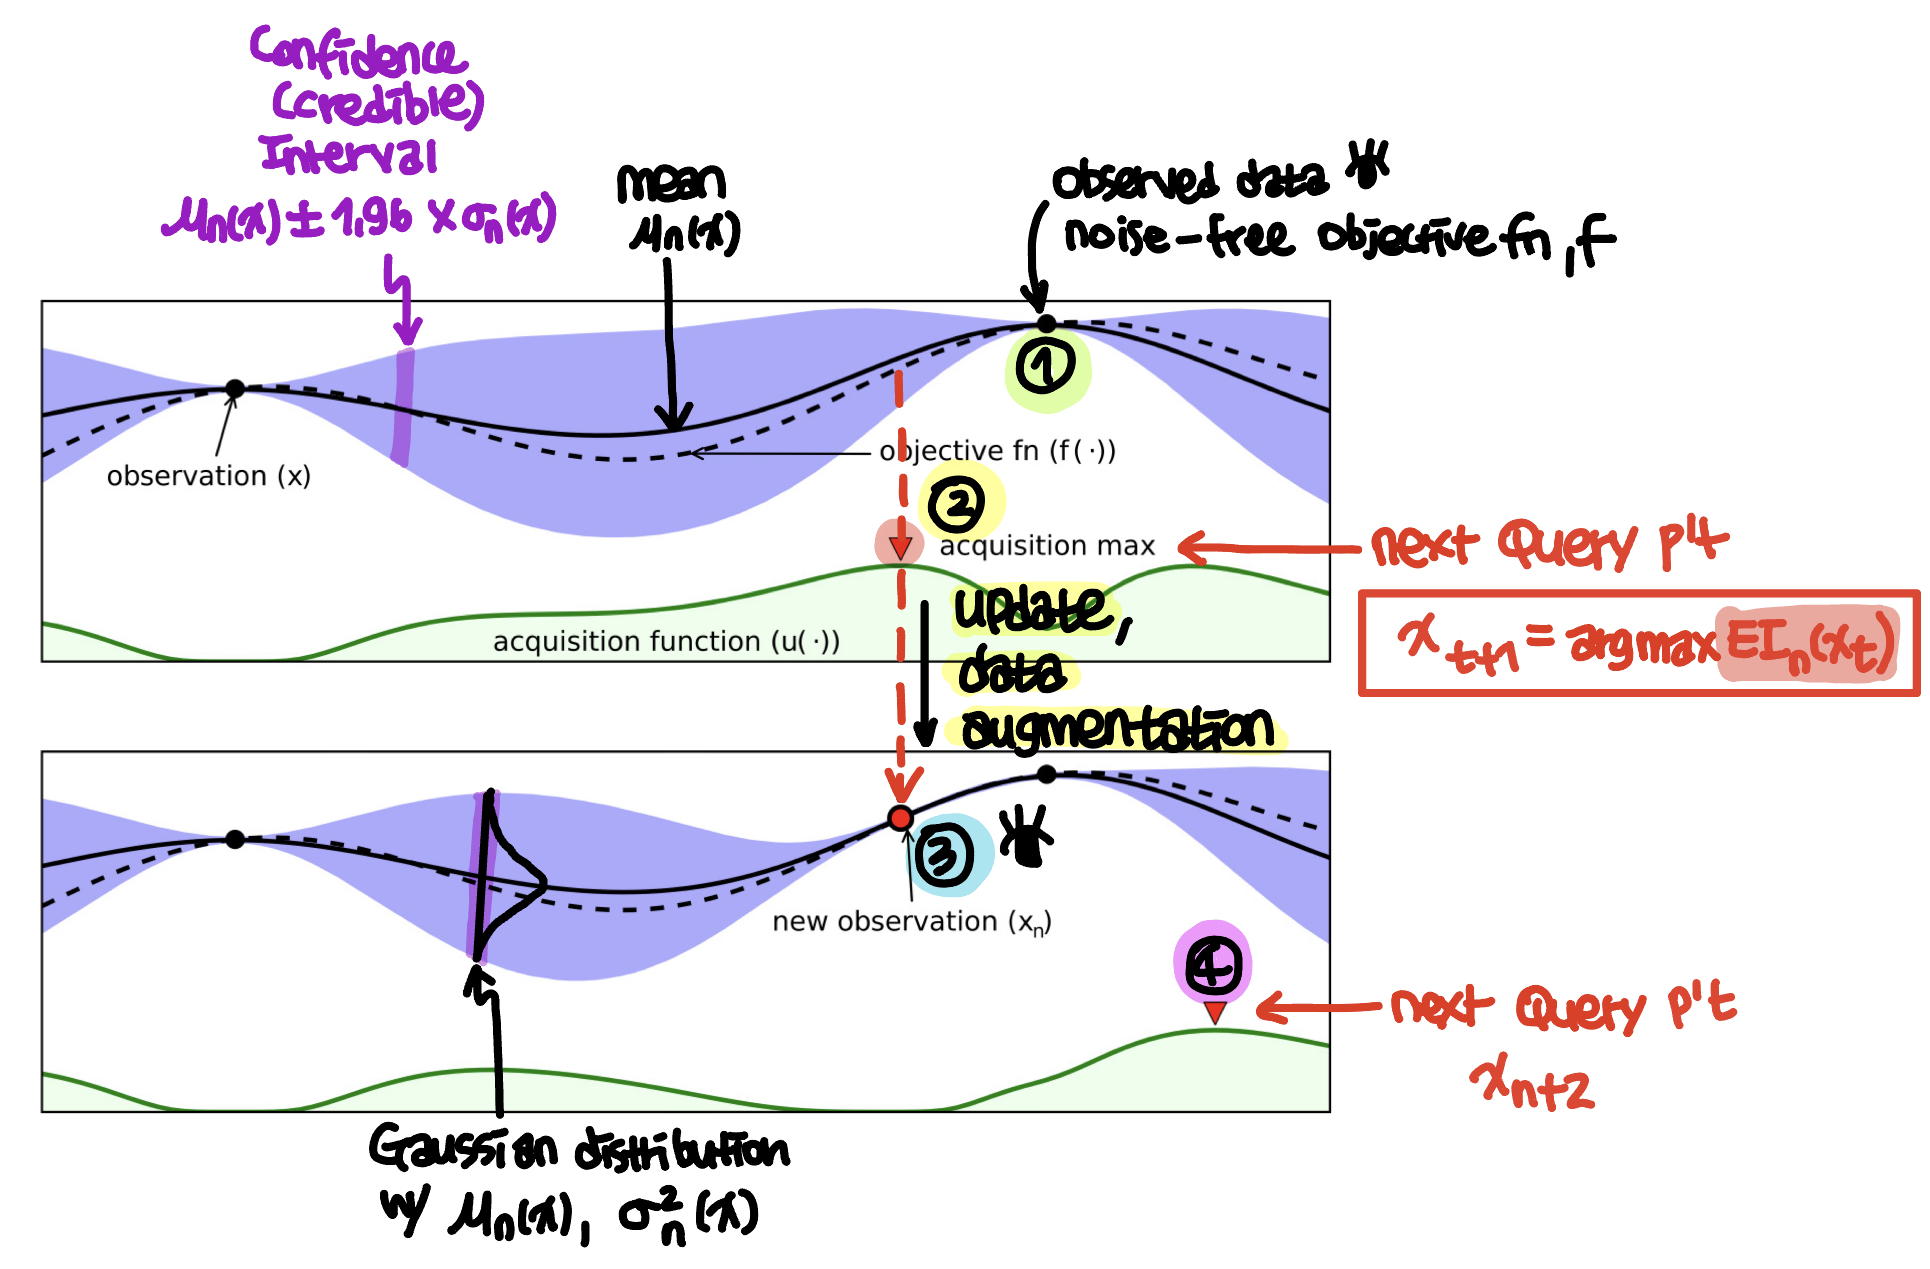 Confidence
(credible)
Interval
μn(x) ± 1.96 × σn(x)
mean
μn(x)
observed data
noise-free objective fn, f
①
observation (x)
objective fn (f(·))
②
acquisition max
next Query p't
update,
data
augmentation
acquisition function (u(·))
x t+1 = argmax EIn(xt)
③
new observation (xn)
④
next Query p't
xn+2
Gaussian distribution
w/ μn(x), σ²n(x)